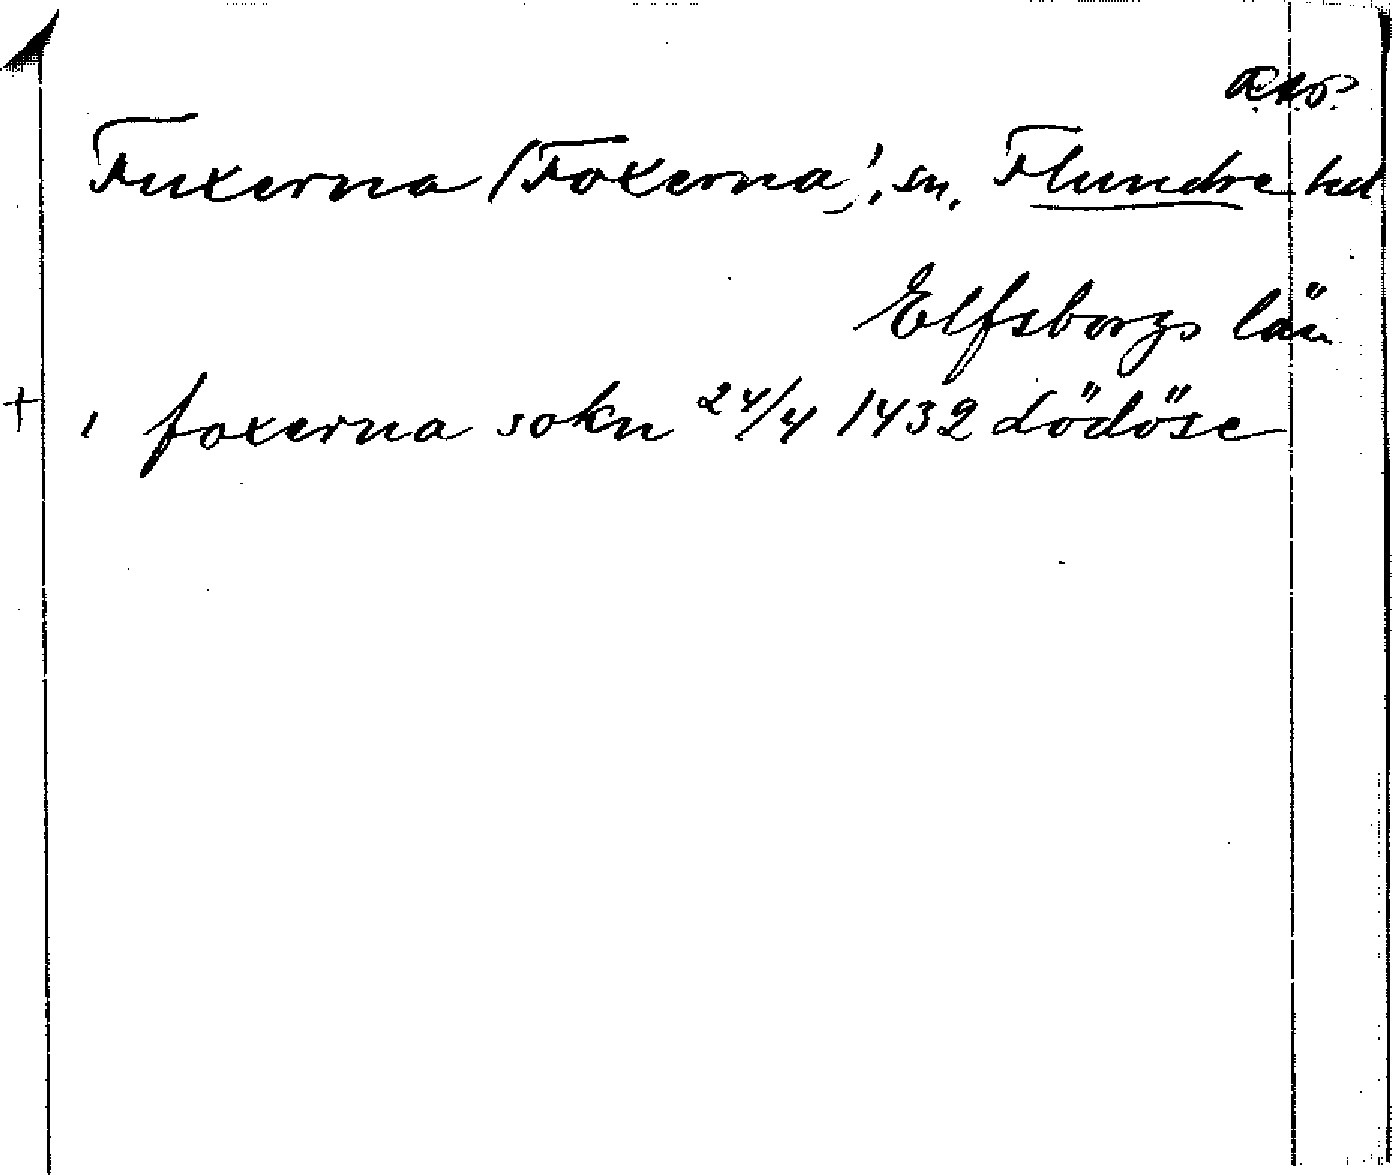 Fuxerna (Foxerna), sn, Flundre hd
Elfsborgs län
+ i foxerna sokn 24/4 1432 Lödöse